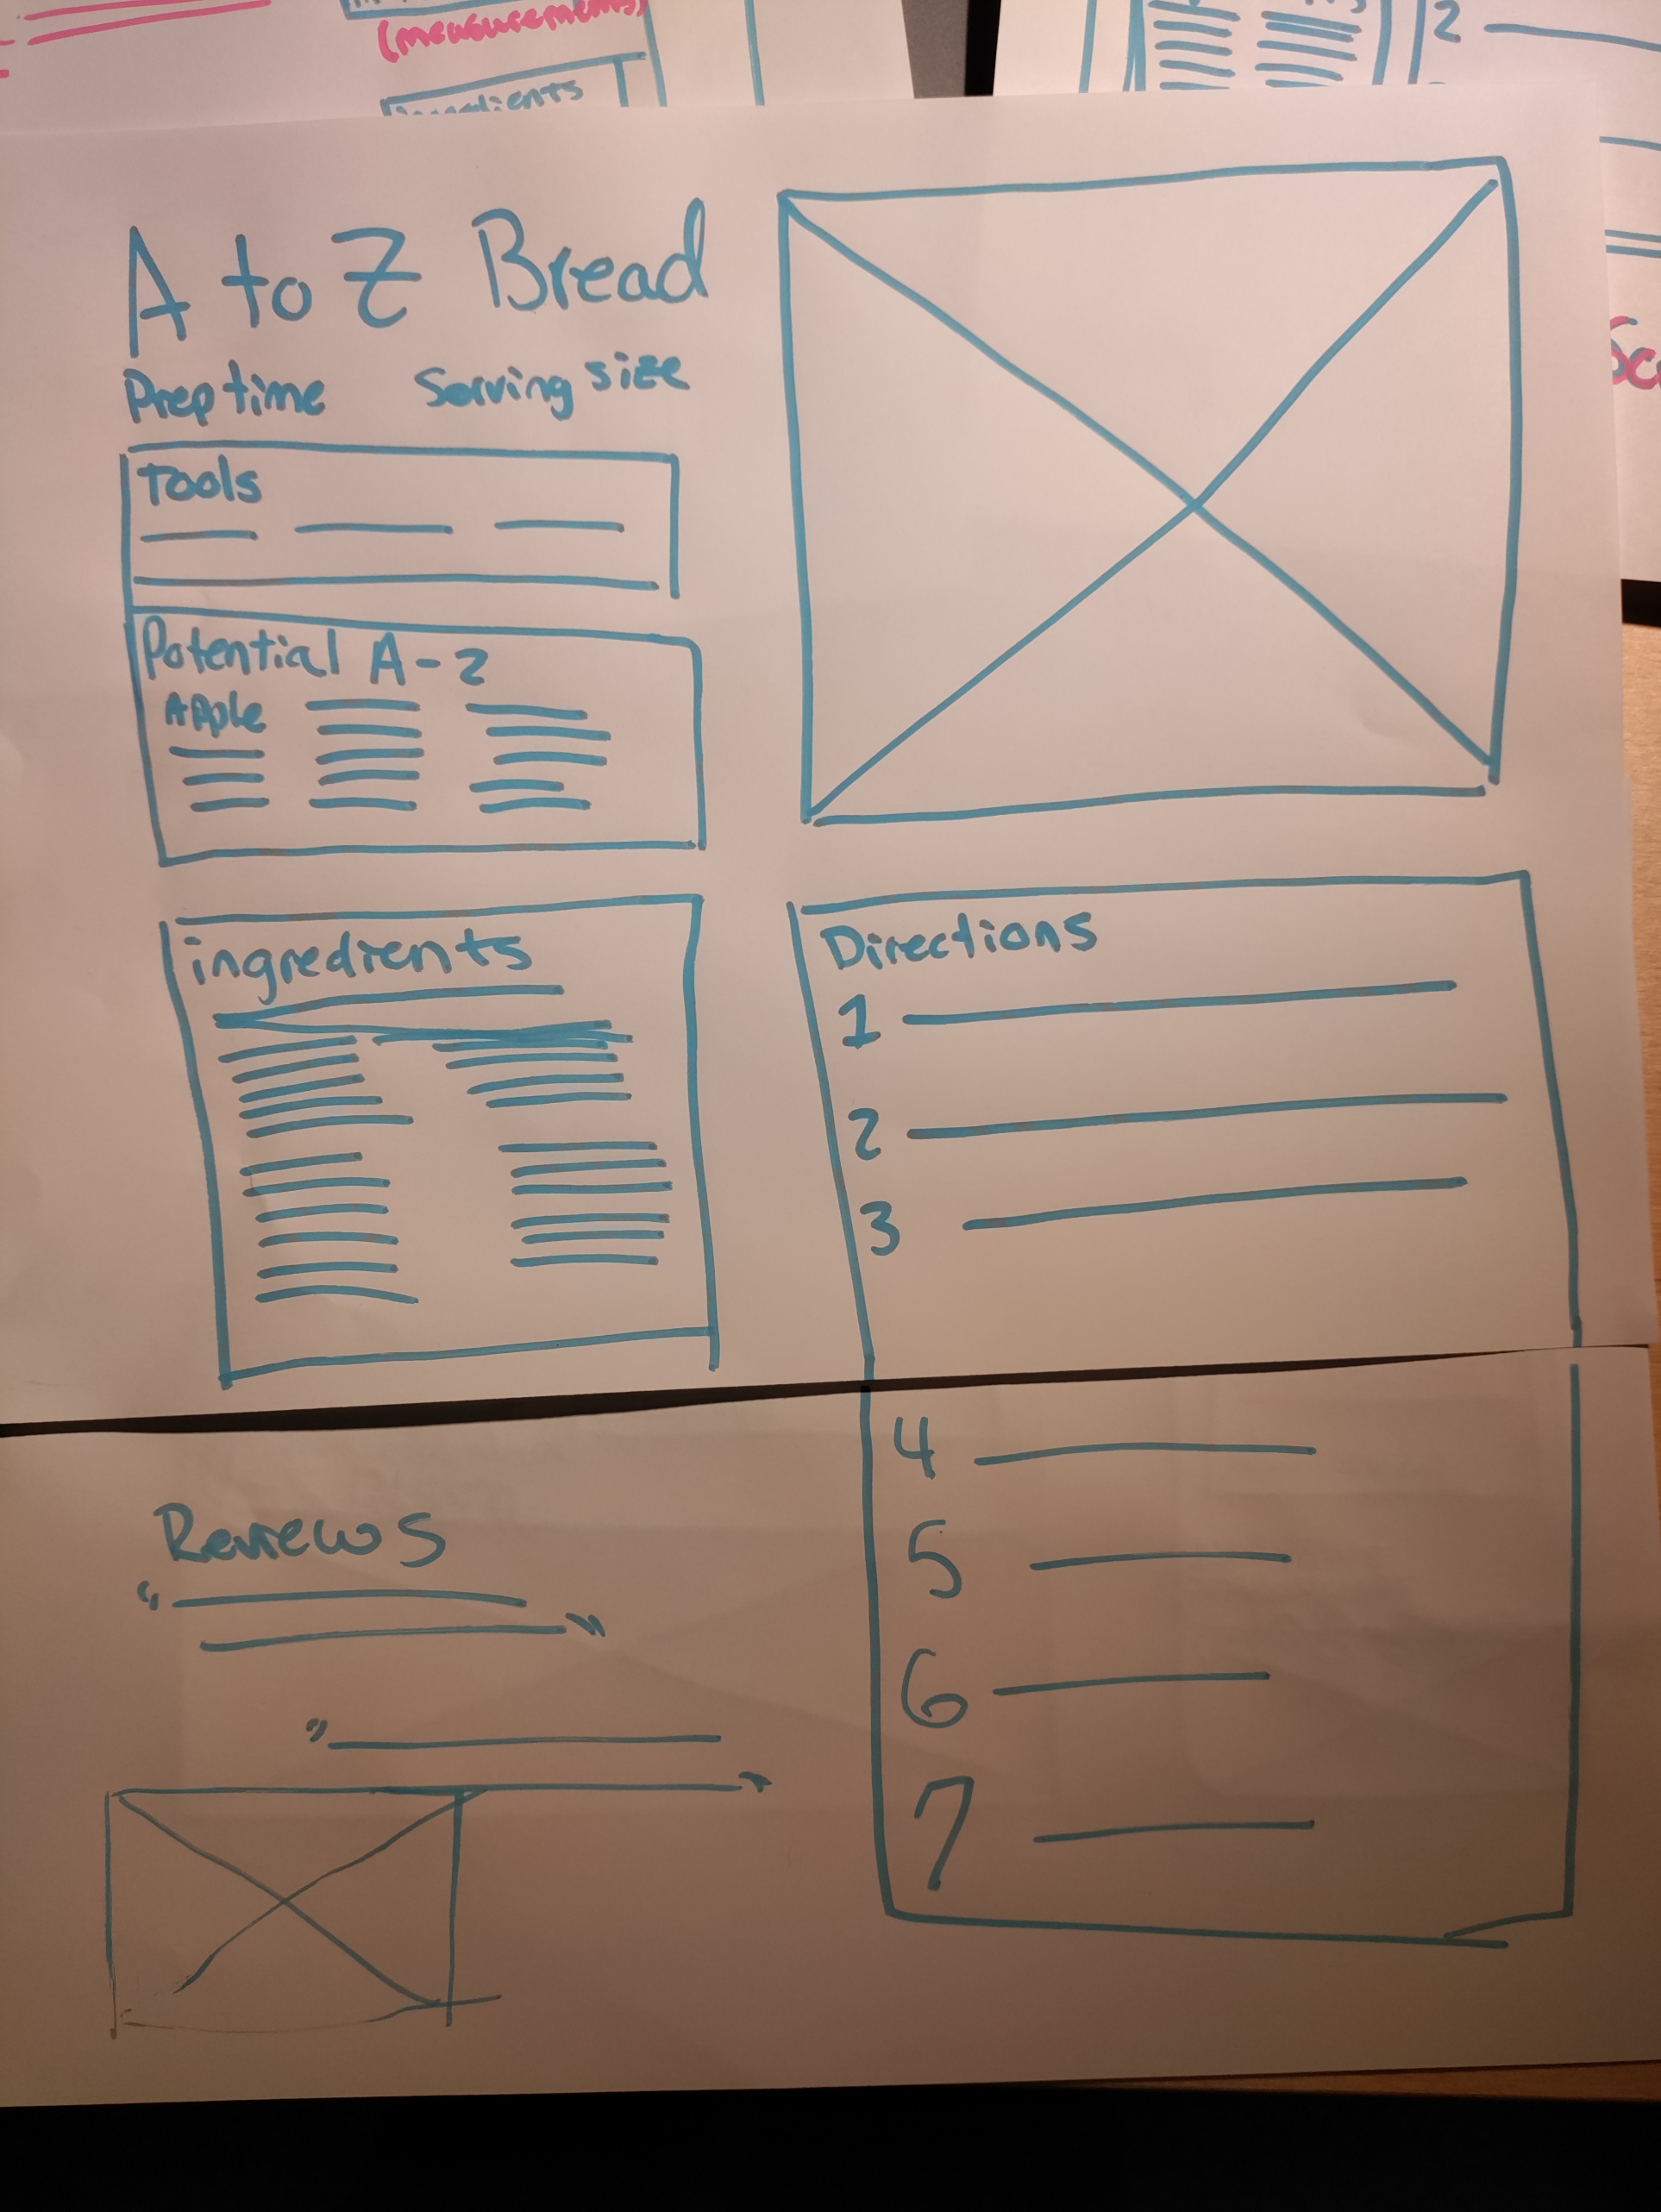 (measurements)
ingredients
2
A to Z Bread
Prep time Serving size
Tools
Potential A-Z
Apple
ingredients
Directions
1
2
3
4
5
6
7
Reviews
“
”
”
”